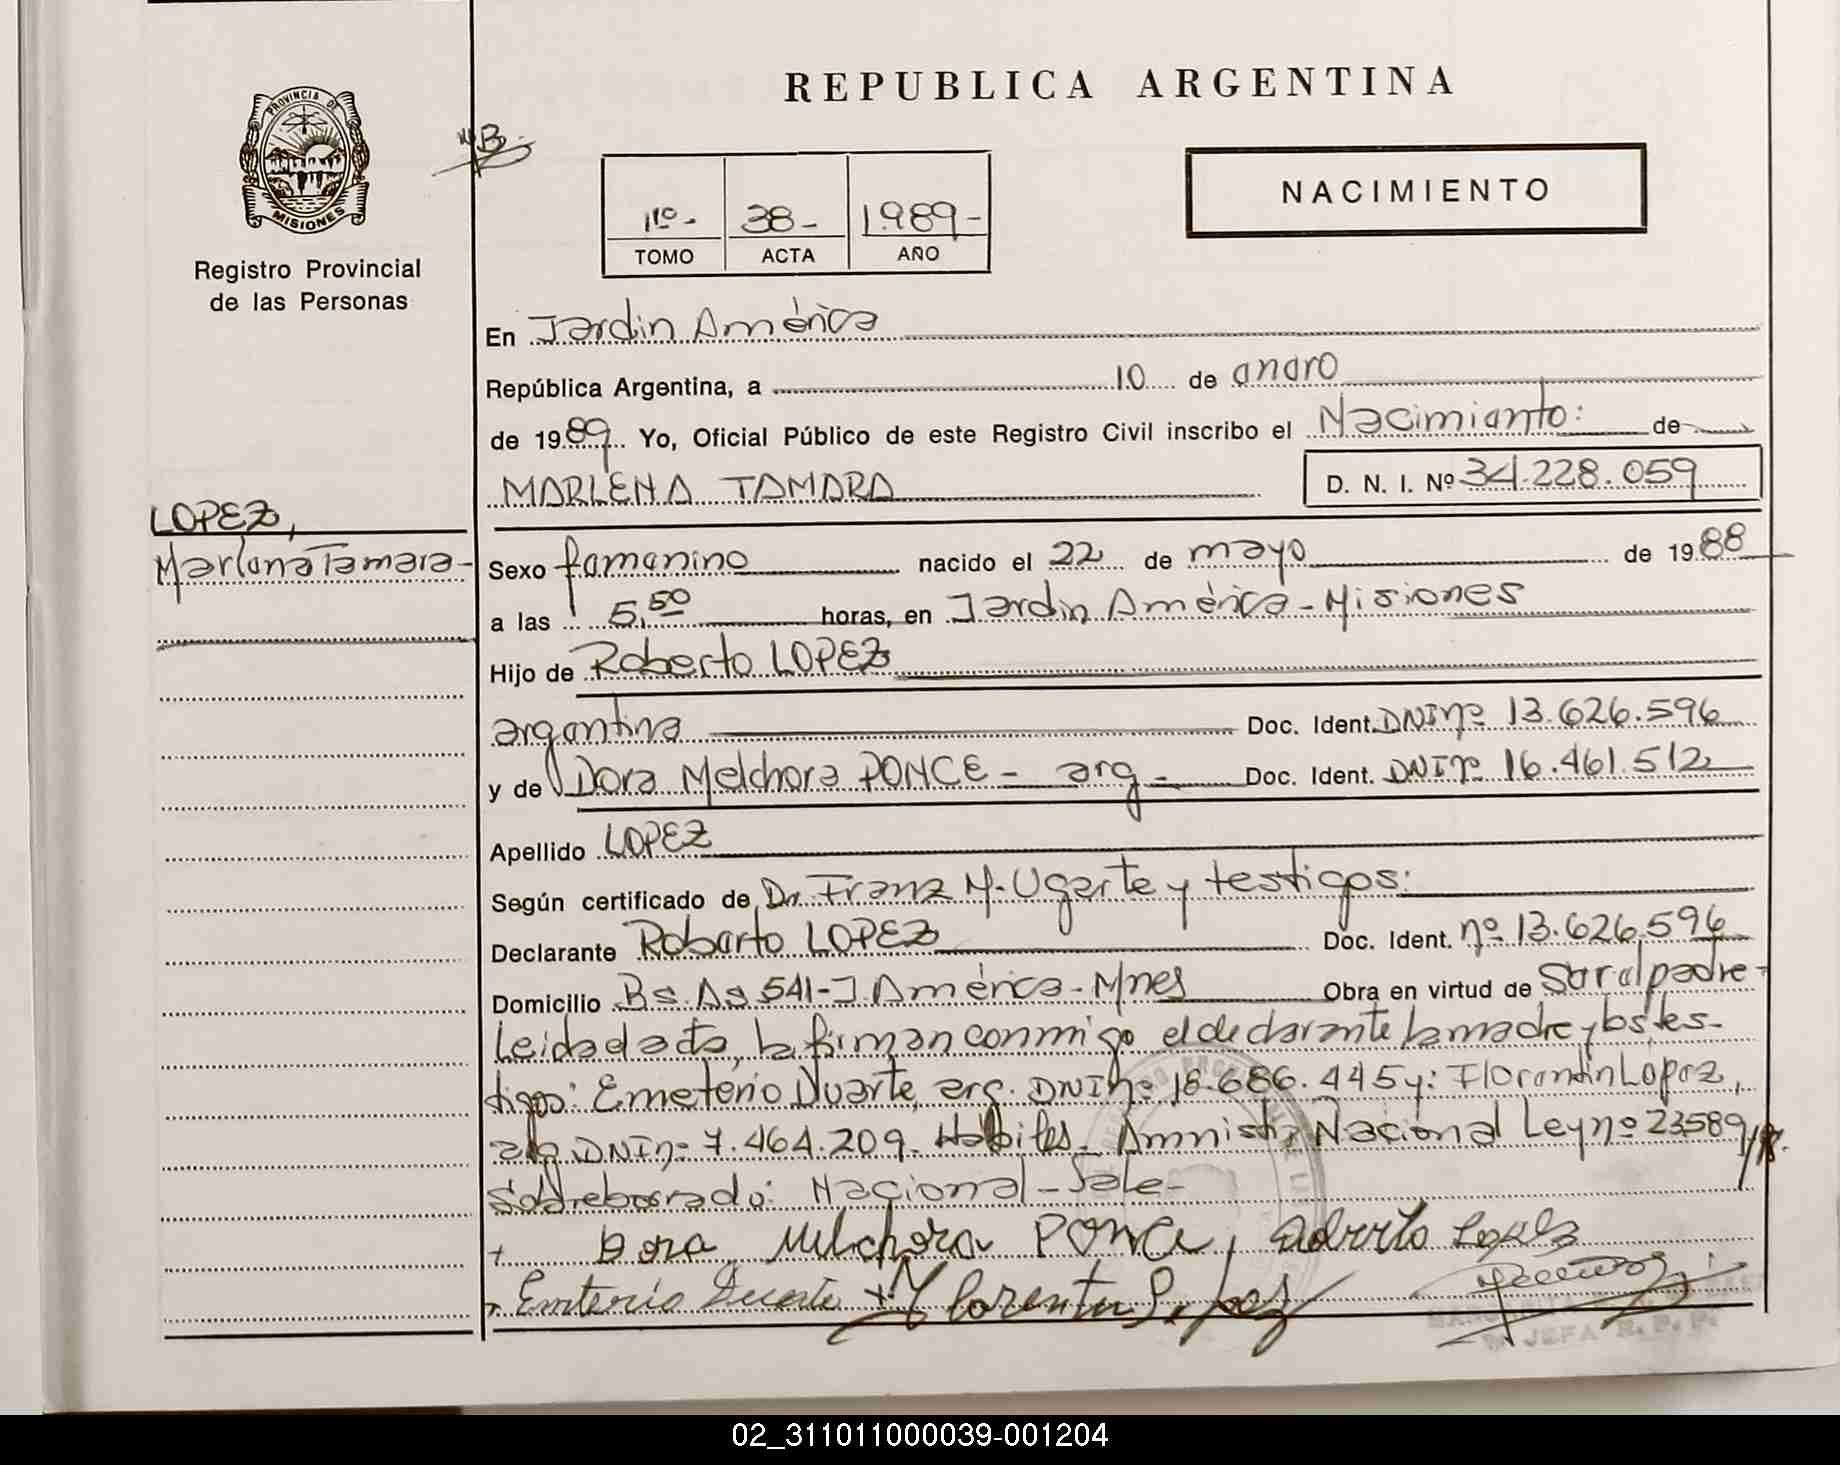 REPUBLICA ARGENTINA
PROVINCIA DE MISIONES
Registro Provincial
de las Personas
NACIMIENTO
1º- 38- 1989-
TOMO ACTA AÑO
En Jardin América
República Argentina, a 10 de enero
de 1989 Yo, Oficial Público de este Registro Civil inscribo el Nacimiento: de
MARLENA TAMARA D. N. I. Nº 34.228.059
LOPEZ,
Marlena Tamara-
Sexo femenino nacido el 22 de mayo de 1988
a las 5,50 horas, en Jardin América - Misiones
Hijo de Roberto LOPEZ
argentina Doc. Ident. DNI nº 13.626.596
y de Dora Melchora PONCE - arg - Doc. Ident. DNI nº 16.461.512
Apellido LOPEZ
Según certificado de Dr. Franz M. Ugarte y testigos:
Declarante Roberto LOPEZ Doc. Ident. nº 13.626.596
Domicilio Bs. As 541 - J. América - Mnes Obra en virtud de Ser el padre-
Leida el acta, la firman conmigo el declarante la madre y los tes-
tigos: Emeterio Duarte, arg. DNI nº 18.686.445 y: Florentin Lopez,
arg DNI nº 7.464.209. Habiles. Amnistia Nacional Ley nº 23589
Sobreborrado: Nacional - Vale-
+ Dora Melchora PONCE, Roberto Lopez
Emeterio Duarte + Florentin Lopez
JEFA R. P. P.
02_311011000039-001204